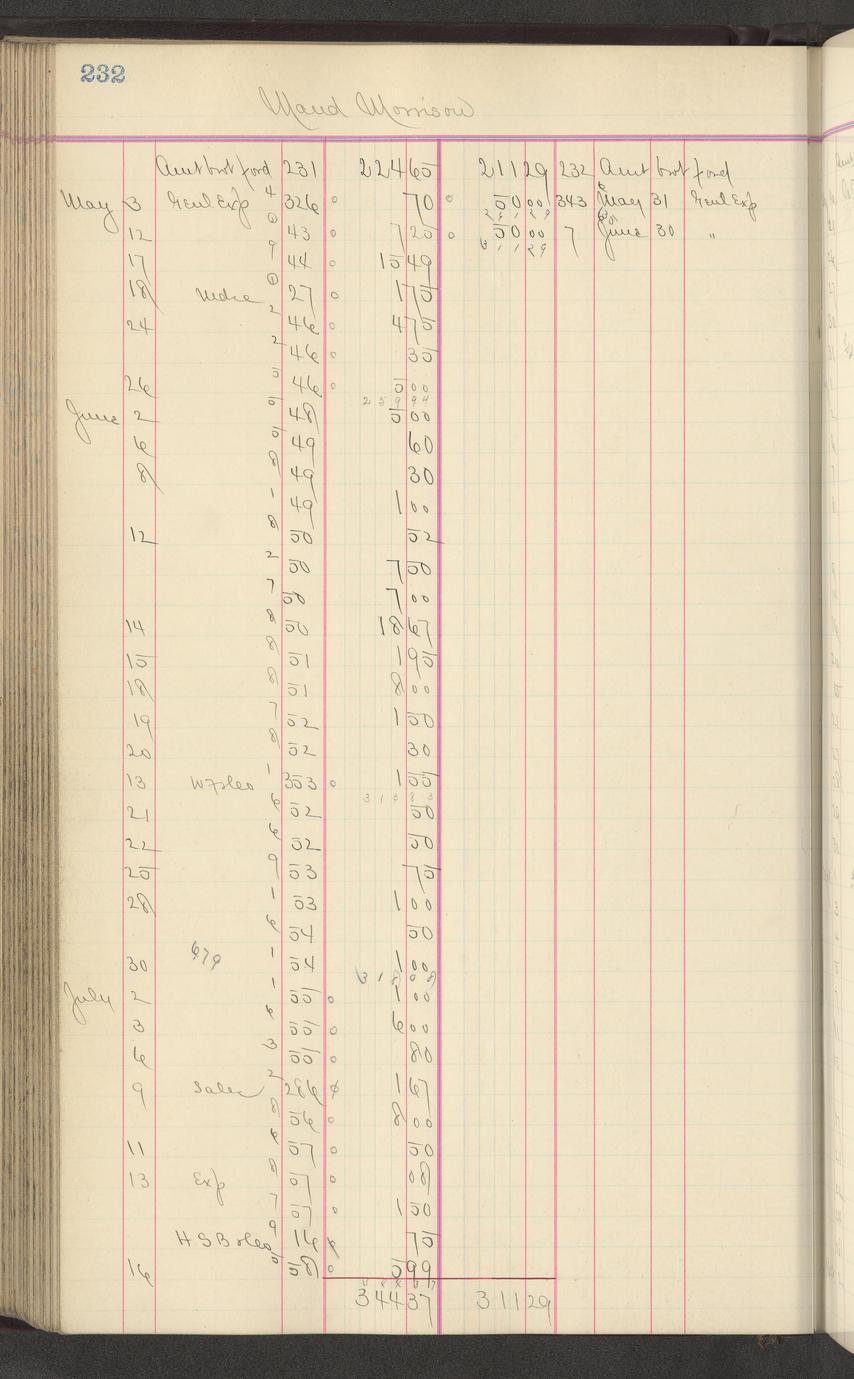 232
Maud Morrison
Amt brot ford 231 224 65 211 29 232 Amt brot ford
May 3 Genl Exp 4 326 70 50 00 343 May 31 Genl Exp
12 43 7 25 50 00 7 June 30 "
17 9 44 15 49 3 1 1 29
18 Mdse 27 1 75
24 2 46 4 75
2 46 35
26 5 46 5 00
259 94
June 2 5 48 5 00
6 5 49 60
8 8 49 30
1 49 1 00
12 8 50 52
2 50 7 50
7 50 7 00
14 8 50 18 67
15 8 51 1 95
18 8 51 8 00
19 7 52 1 50
20 8 52 30
13 1 353 1 55
313 83
21 6 52 50
22 6 52 50
25 9 53 75
28 1 53 1 00
6 54 50
30 679 1 54 1 00
318 08
July 2 1 55 1 00
3 6 55 6 00
6 3 55 80
9 Sales 2 286 1 67
8 56 8 00
11 6 57 50
13 Exp 8 57 08
7 57 1 50
9 16 75
16 5 58 5 99
344 37 311 29